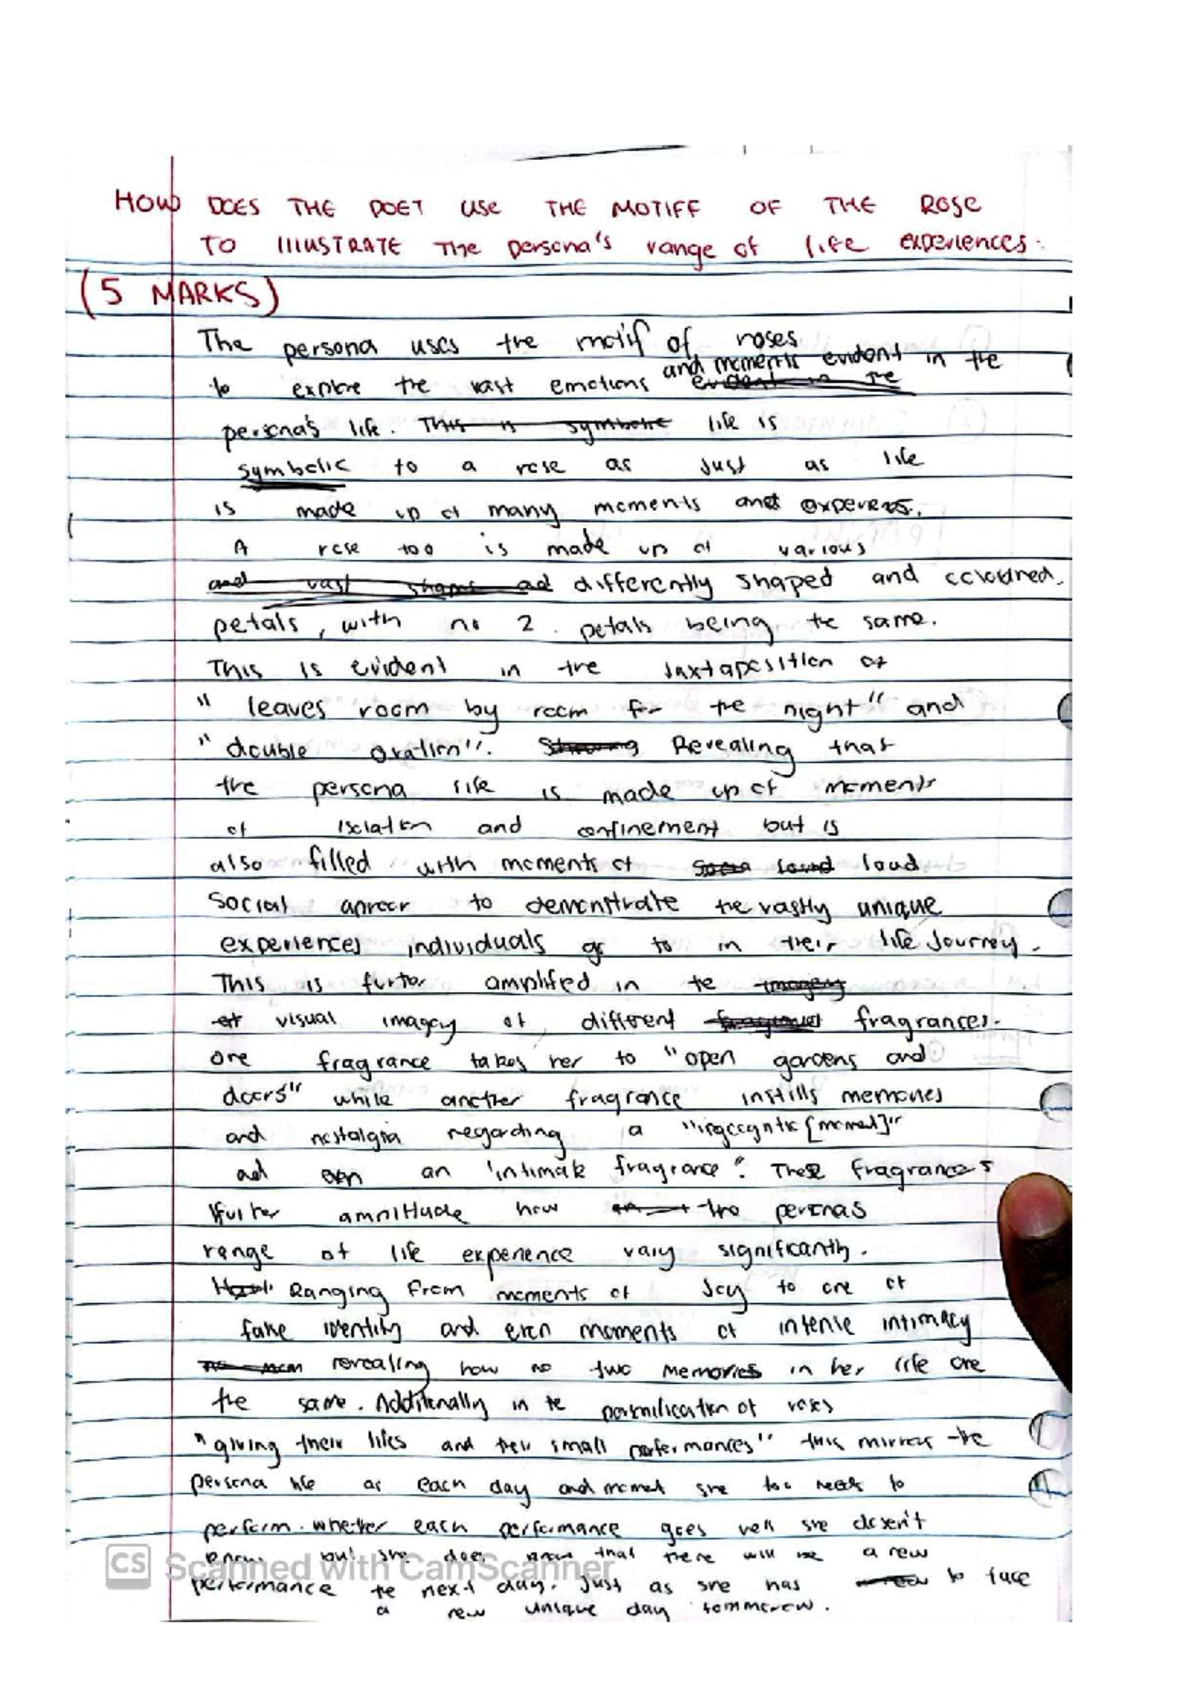 HOW DOES THE POET USE THE MOTIFF OF THE ROSE
TO IllUSTRATE THE persona's range of life experiences.
(5 MARKS)
The persona uses the motif of roses
and moments evident in the
to explore the vast emotions evident in the
persona's life. This is symbolic life is
symbolic to a rose as just as life
is made up of many moments and
A rose too is made up of various
and vast shapes ad differently shaped and coloured.
petals, with no 2 petals being the same.
This is evident in the Juxtaposition of
" leaves room by room for the night" and
" double ovation". Revealing that
the persona life is made up of moments
of isolation and confinement but is
also filled with moments of loud
Social to demonstrate the vastly unique
experiences individuals go to in their life Journey.
This is further amplified in te imagery
of visual imagey of different fragrances.
one fragrance takes her to "open gardens and
doors" while another fragrance instills memories
and nostalgia regarding a
ad even an 'intimate fragrance". These fragrances
further how the personas
range of life experience vary significantly.
Ranging from moments of Joy to one of
fake identity and even moments of intense intimacy
revealing how no two memories in her life are
the same. Additionally in te of roses
"giving their lifes and their small performances" this mirrors the
persona life as each day and moment she too needs to
perform. whether each performance goes well she doesn't
know but she does know that there will be a new
CS Scanned with CamScanner
performance te next day. Just as she has to face
a new unique day tommorow.